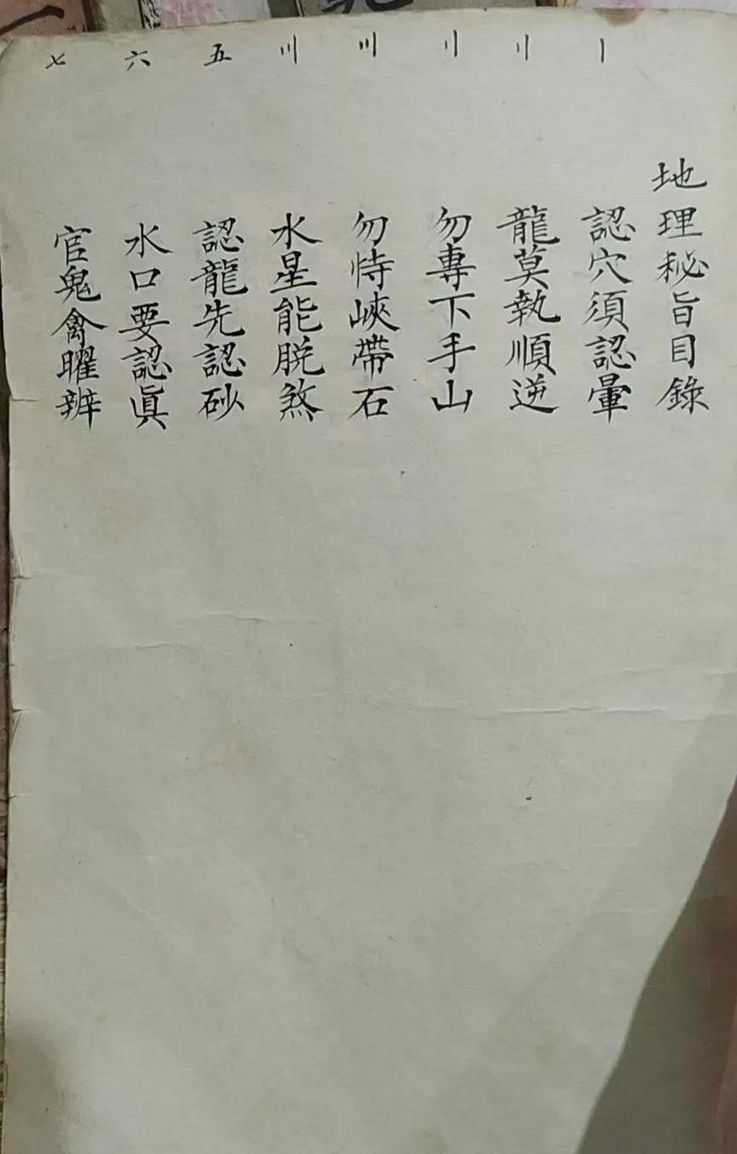 地理秘旨目錄
認穴須認暈 〡
龍莫執順逆 〢
勿專下手山 〢
勿恃峽帶石 〣
水星能脱煞 〣
認龍先認砂 五
水口要認眞 六
官鬼禽曜辨 七